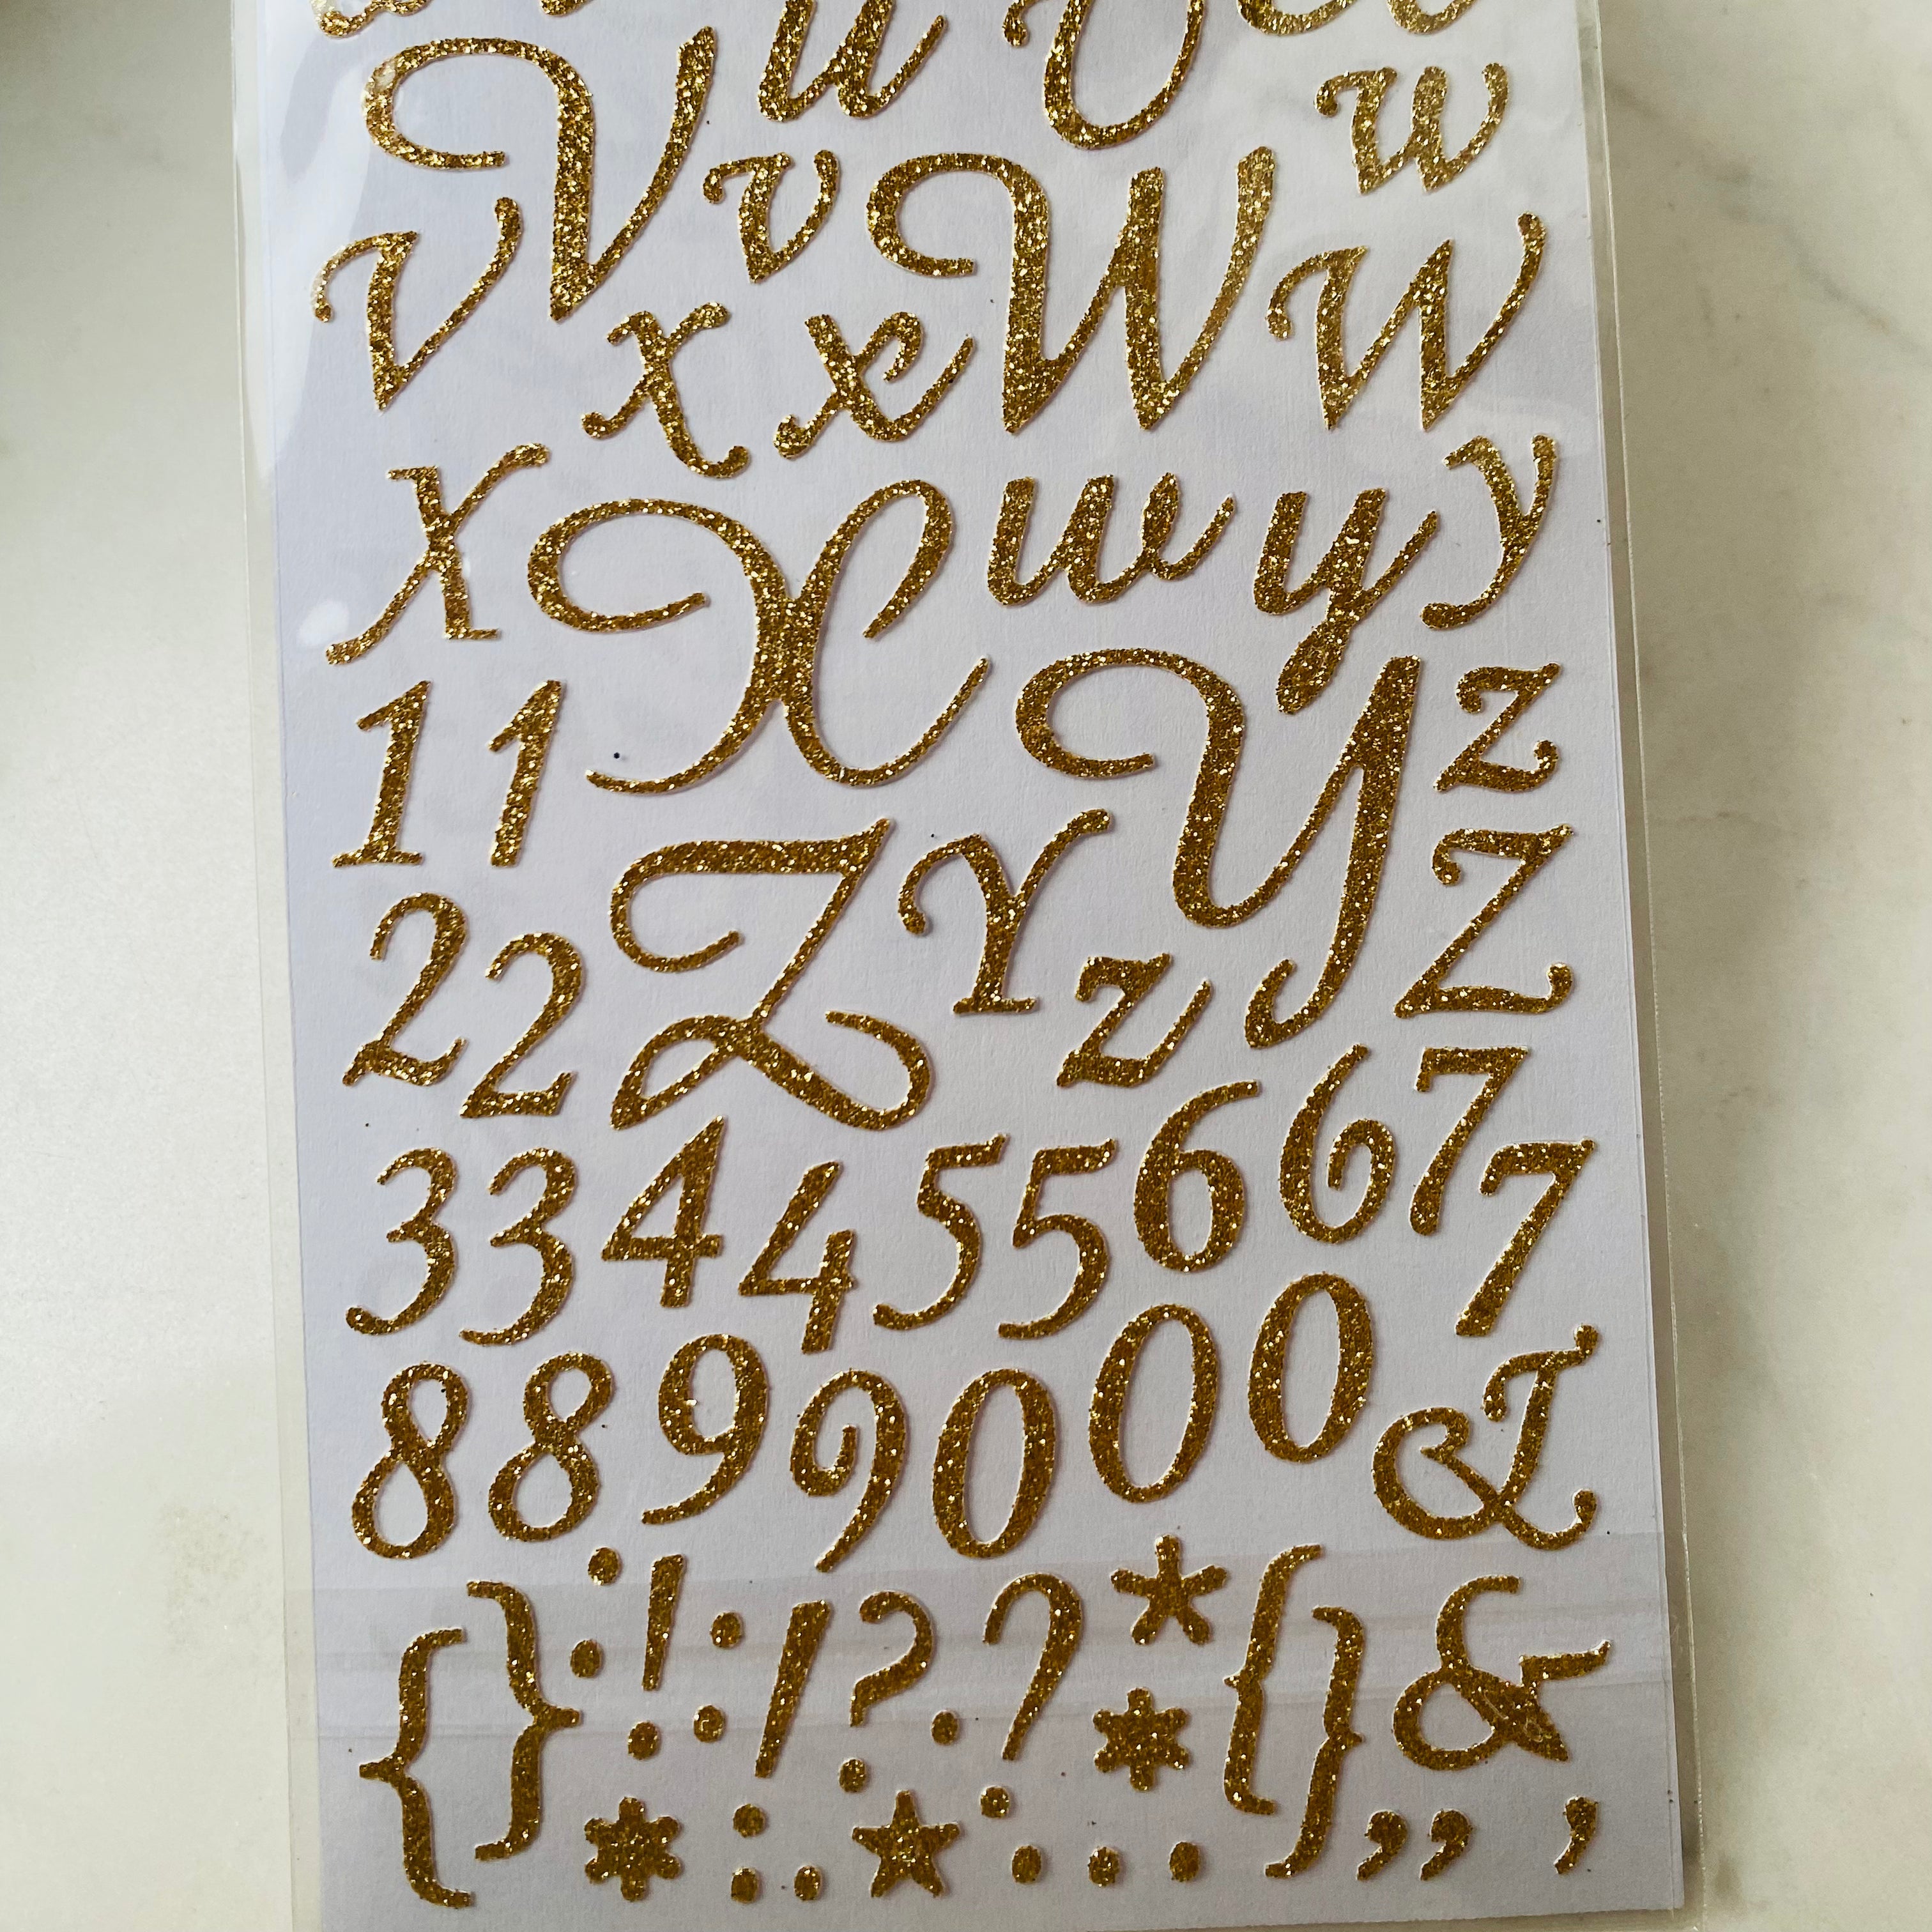 u
V v W w
v x x W
X X w y y
1 1 Y z
2 2 Z Y z Z
3 3 4 4 5 5 6 6 7 7
8 8 9 9 0 0 0 &
{ } : ! : ! ? ? * { } &
* : . * . . . , , ,